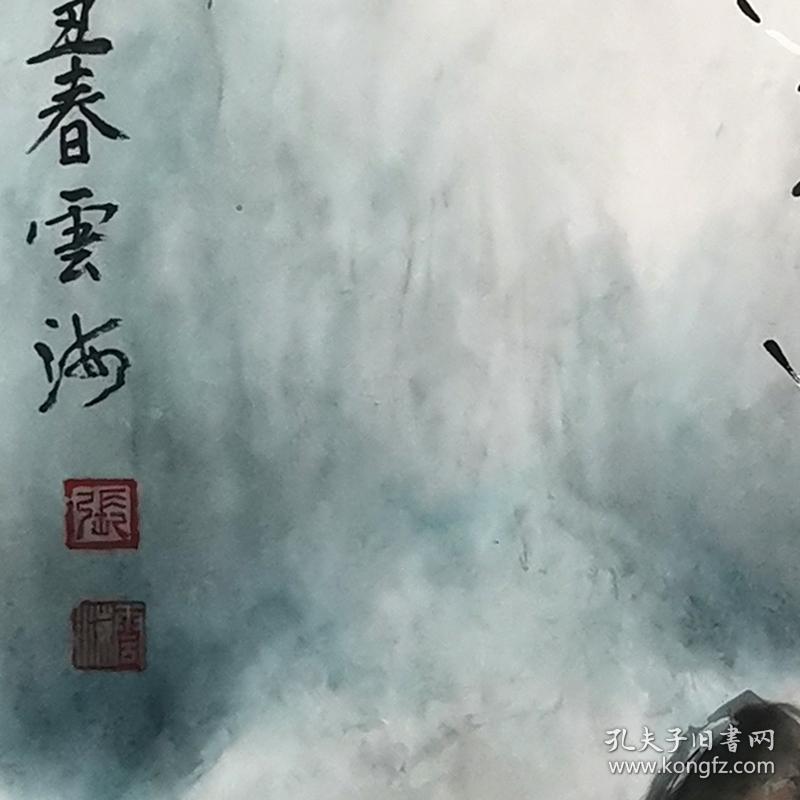 丑春雲海
張
雲海
孔夫子旧書网
www.kongfz.com